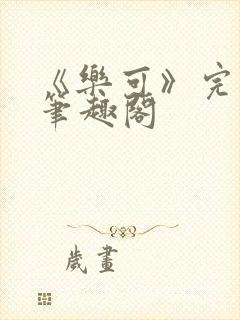 《樂可》完
筆趣閣
歲畫